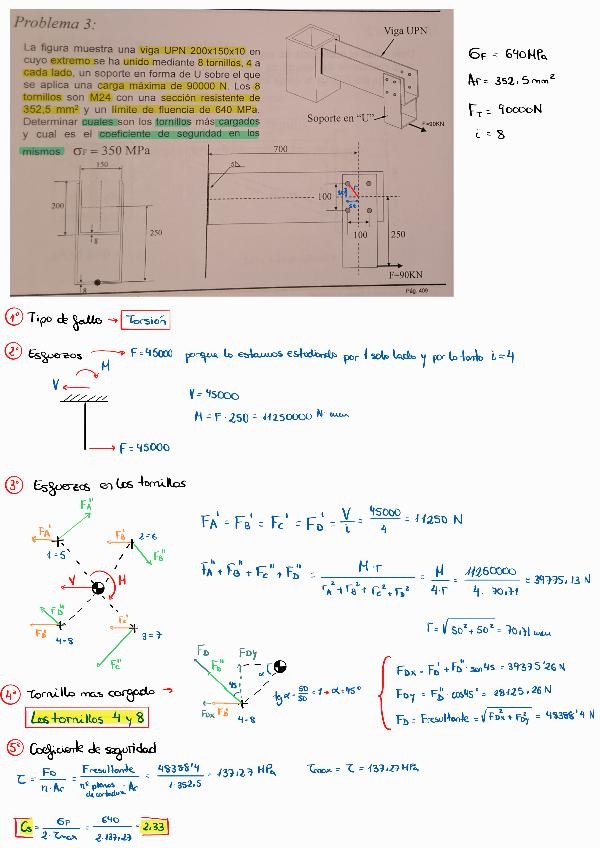 Problema 3:
La figura muestra una viga UPN 200x150x10 en
cuyo extremo se ha unido mediante 8 tornillos, 4 a
cada lado, un soporte en forma de U sobre el que
se aplica una carga máxima de 90000 N. Los 8
tornillos son M24 con una sección resistente de
352,5 mm² y un límite de fluencia de 640 MPa.
Determinar cuales son los tornillos más cargados
y cual es el coeficiente de seguridad en los
mismos σF = 350 MPa
Viga UPN
Soporte en “U”
F=90KN
σF = 640MPa
Ar = 352.5 mm²
FT = 90000N
i = 8
150
200
250
8
8
700
100
50
50
r
100
250
F=90KN
Pág. 409
1º Tipo de fallo → Torsión
2º Esfuerzos → F = 45000 porque lo estamos estudiando por 1 solo lado y por lo tanto i = 4
M
V
F = 45000
V = 45000
M = F · 250 = 11250000 N·mm
3º Esfuerzos en los tornillos
FA'' FA' 1=5
FB' 2=6 FB''
V M
FD'' FD' 4=8
FC' 3=7 FC''
FA' = FB' = FC' = FD' = V/i = 45000/4 = 11250 N
FA'' + FB'' + FC'' + FD'' = M·r / rA² + rB² + rC² + rD² = M/4·r = 11250000/4·70,71 = 39775,13 N
r = √50² + 50² = 70,71 mm
4º Tornillo mas cargado →
Los tornillos 4 y 8
FD FDy FD'' 45 FDx FD' 4-8
α
tg α = 50/50 = 1 → α = 45º
FDx = FD' + FD'' sen 45 = 39375'26 N
FDy = FD'' cos 45º = 28125,26 N
FD = Fresultante = √FDx² + FDy² = 48388'4 N
5º Coeficiente de seguridad
τ = FD/n·Ar = Fresultante/nº planos de cortadura · Ar = 48388'4/1·352,5 = 137,27 MPa
τmax = τ = 137,27 MPa
Cs = σF/2·τmax = 640/2·137,27 = 2,33